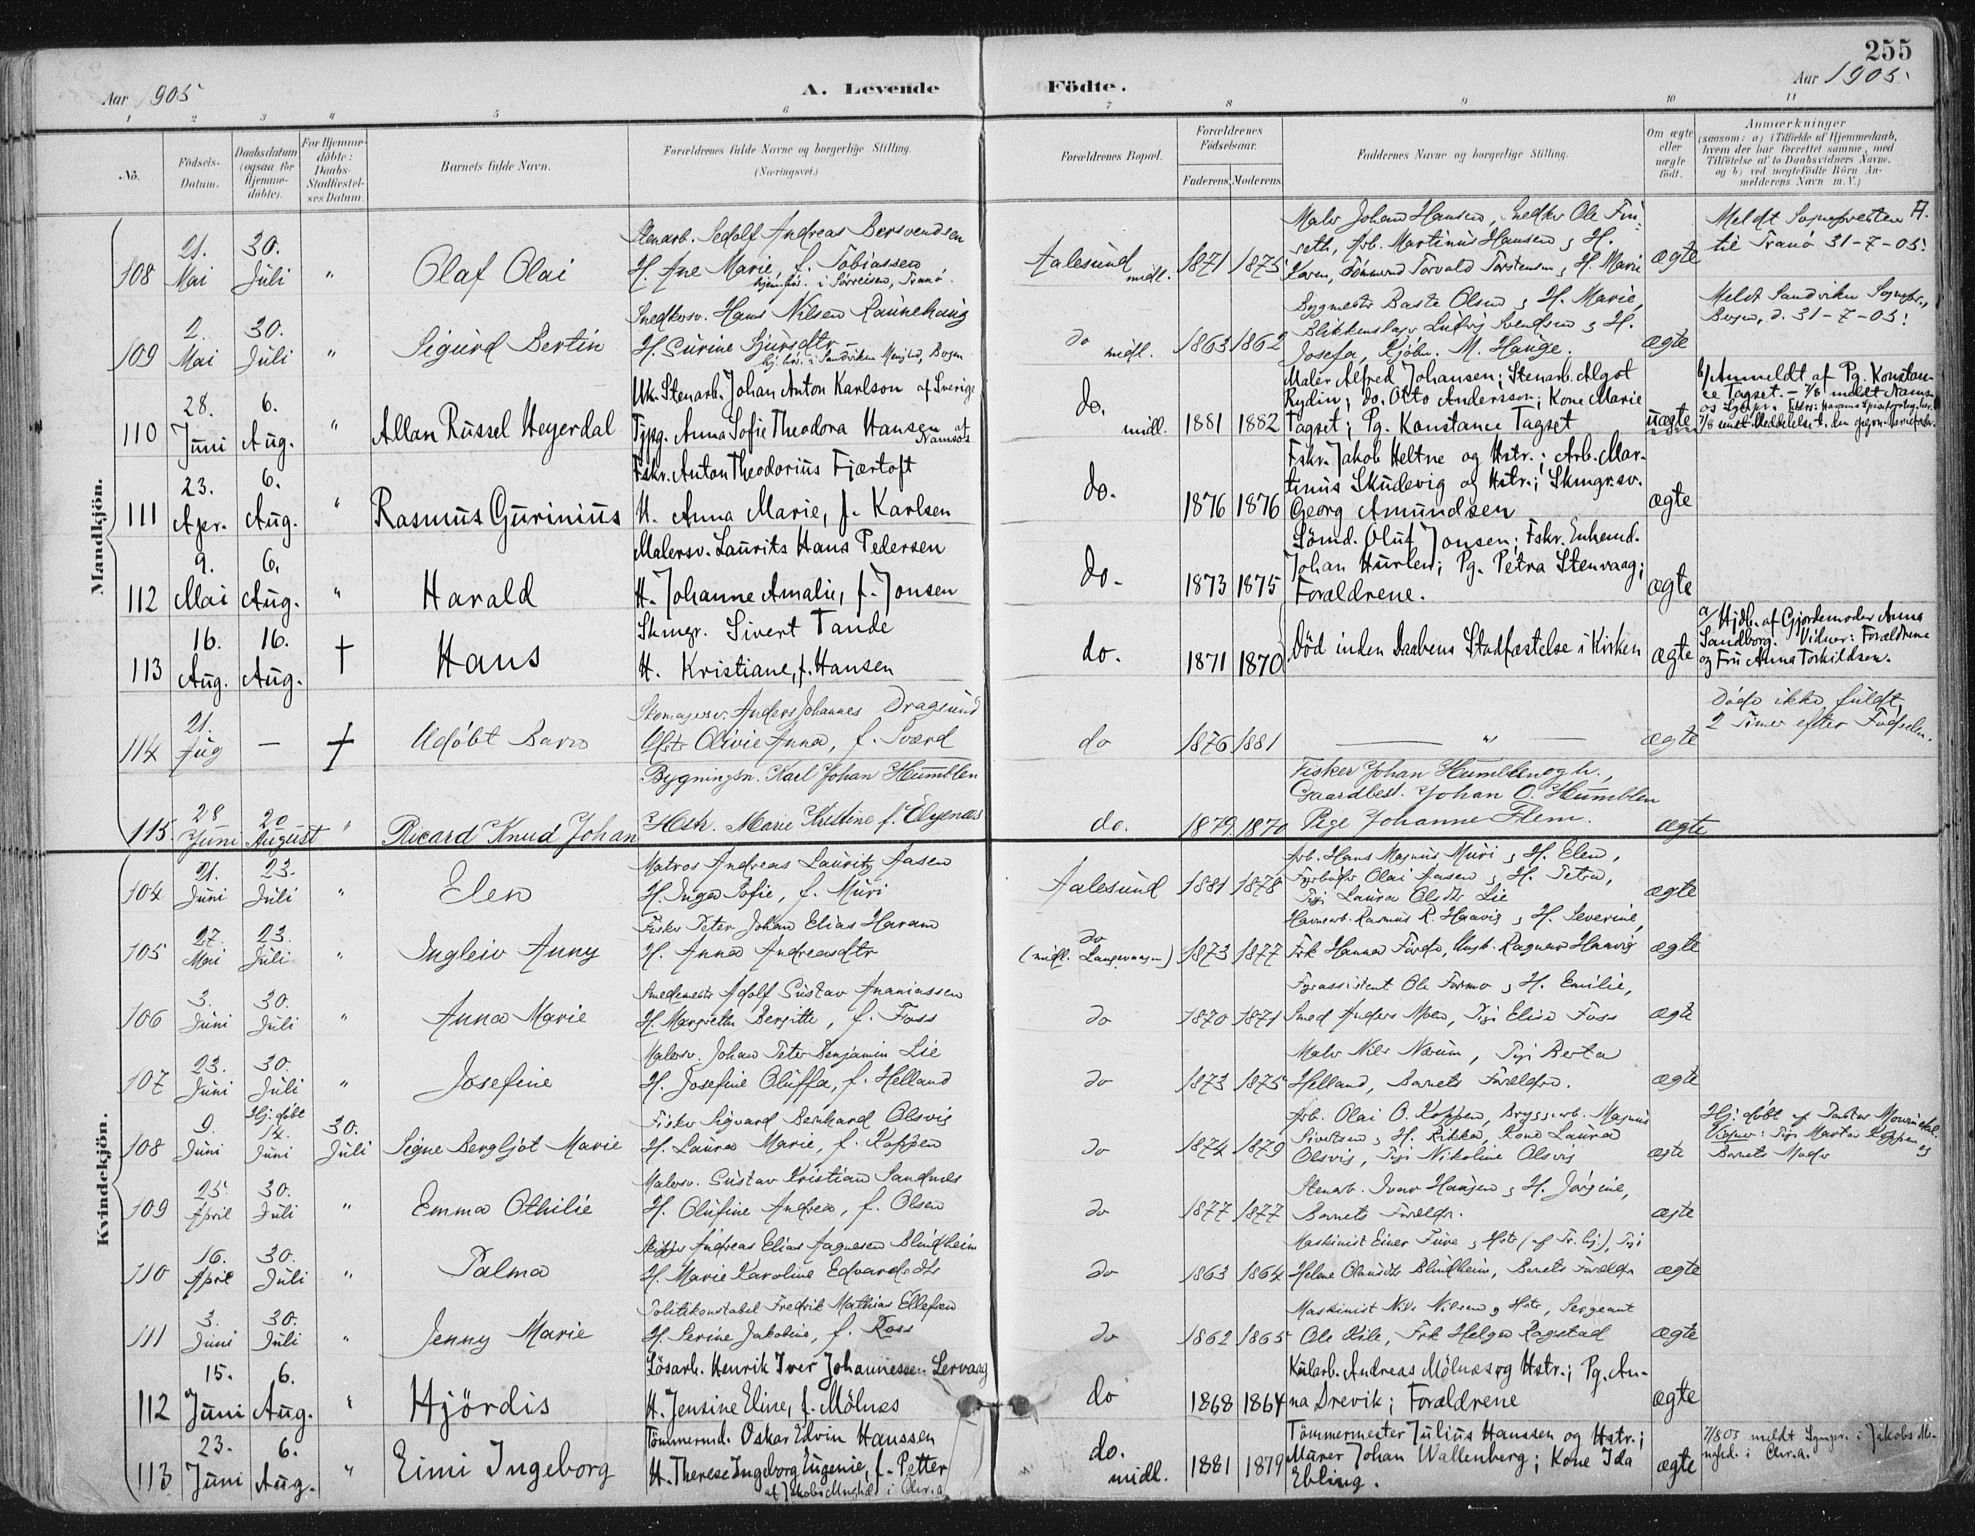 255
Aar 1905
A. Levende Födte.
Aar 1905.
1 2 3 4 5 6 7 8 9 10 11
No.
Födsels-Datum.
Daabsdatum (ogsaa for Hjemme-döbte).
For Hjemme-döbte: Daabs-Stadfæstel-ses Datum.
Barnets fulde Navn.
Forældrenes fulde Navne og borgerlige Stilling.
(Næringsvei.)
Forældrenes Bopæl.
Forældrenes Födselsaar.
Faderens. Moderens.
Faddernes Navne og borgerlige Stilling.
Om ægte eller uægte födt.
Anmærkninger
(saasom: a) i Tilfælde af Hjemmedaab, hvem der har forrettet samme, med Tilföielse af to Daabsvidners Navne, og b) ved uægtefödte Börn An-melderens Navn m. V.)
Mandkjön.
108 21. Mai 30. Juli " Olaf Olai
Stenarb. Sedolf Andreas Bersvendsen
H. Ane Marie, f. Tobiassen
hjemhör. i Sørreisen, Tranö.
Aalesund midl. 1871 1875
Maler Johan Hansen, Snedker Ole Fin-
seth, Arb. Martinus Hansen & H.
Karen, Tømmerm Torvald Torstensen & H. Marie
ægte
Meldt Sognepresten
til Tranö 31-7-05.
109 2. Mai 30. Juli " Sigurd Bertin
Snedkersv. Hans Nilsen Raunehaug
H. Surine Sjursdtr
hj. hør. i Sandviken Menighed, Bergen
do midl. 1863 1862
Bygmester Baste Olsen & H. Marie,
Blikkenslager Ludvig Svendsen & H.
Josefa, Kjøbm. M. Hauge.
ægte
Meldt Sandviken Sognepr.,
Bergen, d. 31-7-05.
110 28. Juni 6. Aug. " Allan Russel Heyerdal
Uk. Stenarb. Johan Anton Karlson af Sverige
Tgpg. Anna Sofie Theodora Hansen af Namsos
do. midl. 1881 1882
Maler Alfred Johansen; Stenarb. Algot
Rydin; do. Otto Andersson; Kone Marie
Tagset; Pg. Konstance Tagset
uægte
b/ Anmeldt af Pg. Konstan-
ce Tagset. - 7/8 meldt Namsos
111 23. Apr. 6. Aug. " Rasmus Gurinius
Fskr. Anton Theodorius Fjærtoft
H. Anna Marie, f. Karlsen
do. 1876 1876
Fskr. Jakob Heltne og Hstr.; Arb. Mar-
tinus Skudevig og Hstr.; Skmgrsv.
Georg Amundsen
ægte
112 9. Mai 6. Aug. " Harald
Malersv. Laurits Hans Pedersen
H. Johanne Amalie, f. Jonsen
do. 1873 1875
Sömd. Oluf Jonsen; Fskr. Enkemd.
Johan Hurlen; Pg. Petra Stenvaag;
Forældrene.
ægte
113 16. Aug. 16. Aug. † Hans
Skmgr. Sivert Tande
H. Kristiane, f. Hansen
do. 1871 1870
Död inden Daabens Stadfæstelse i Kirken
ægte
a/ Hjdb. af Gjordemoder Anna
Sandborg. Vidner: Forældrene
og Fru Anna Torkildsen.
114 21. Aug — † Udöbt Barn
Skomagersv. Anders Johannes Dragsund
Hstr Olivie Anna, f. Sværd
do 1876 1881 — " — ægte
Døde ikke fuldt
2 Timer efter Fødselen.
115. 28 Juni 20 August " Ricard Knud Johan
Bygningsn. Karl Johan Humblen
Hstr. Marie Kristine f. Elgenæs
do. 1879 1870
Fisker Johan Humblen og h.,
Gaardbest. Johan O. Humblen
Pige Johanne Flem.
ægte
Kvindekjön.
104 21. Juni 23. Juli " Elen
Matros Andreas Lauritz Aasen
H. Inga Sofie, f. Muri
Aalesund 1881 1878
Arb. Hans Magnus Muri & H. Elen,
Fyrbøder Olai Aasen & H. Petra,
Pigi Laura Olsdtr Lie
ægte
105 27. Mai 23. Juli " Ingleiv Anny
Fisker Peter Johan Elias Haram
H. Anna Andreasdtr
do (midl. Langevaagen) 1873 1877
Havnearb. Rasmus R. Haavig & H. Severine,
Frk Hanna Førde, Ungk. Ragnar Haavig
ægte
106 3. Juni 30. Juli " Anna Marie
Smedemester Adolf Gustav Ananiassen
H. Margrethe Bergitte, f. Foss
do 1870 1871
Fyrassistent Ole Formo & H. Emilie,
Smed Anders Moen, Pigi Elise Foss
ægte
107 23. Juni 30. Juli " Josefine
Malersv. Johan Peter Benjamin Lie
H. Josefine Oluffa, f. Helland
do 1873 1875
Maler Nils Nærum, Pigi Berta
Helland, Barnets Forældre.
ægte
108 9. Juni Hj. døbt 14. Juni 30. Juli Signe Bergljot Marie
Fisker Sigvard Bernhard Olsvig
H. Laura Marie, f. Koppen
do 1874 1879
Arb. Olai O. Koppen, Bryggerarb. Magnus
Sivertsen & H. Rikka, Kone Laura
Olsvig, Pigi Nikoline Olsvig
ægte
Hj. døbt af Pastor
Vidner: Pigi Marta Koppen og
Barnets Moder
109 25. April 30. Juli " Emma Othilie
Malersv. Gustav Kristian Sandnes
H. Olufine Andrea, f. Olsen
do 1877 1877
Stenarb. Ivar Hansen & H. Jørgine,
Barnets Forældr.
ægte
110 16. April 30. Juli " Palma
Skipper Andreas Elias Aagnesen Blindheim
H. Marie Karoline Edvardsdtr
do 1863 1864
Maskinist Einer Fure & Hstr (af Fr. kj.), Pigi
Helene Olausdtr Blindheim, Barnets Forældr
ægte
111 3. Juni 30. Juli " Jenny Marie
Politikonstabel Fredrik Mathias Ellefsen
H. Serine Jakobine, f. Ross
do 1862 1865
Maskinist Nils Nilsen & Hstr, Sergeant
Ole Kile, Frk Helga Ragstad
ægte
112 15. Juni 6. Aug. " Hjördis
Lösarb. Henrik Iver Johannessen Lervaag
H. Jensine Eline, f. Mölnæs
do 1868 1864
Kularb. Andreas Mölnæs og Hstr.; Pg. An-
na Drevik; Forældrene
ægte
113 23. Juni 6. Aug. " Eimi Ingeborg
Tömmermd. Oskar Edvin Hanssen
H. Therese Ingeborg Eugenie, f. Petter
af Jakobs Mnghd. i Chr.a
do. midl. 1881 1879
Tömmermester Julius Hanssen og Hstr.;
Murer Johan Wallenberg; Kone Ida
Ebling.
ægte
7/8 05 meldt Sognpr. i Jakobs Me-
nighd. i Chr.a.